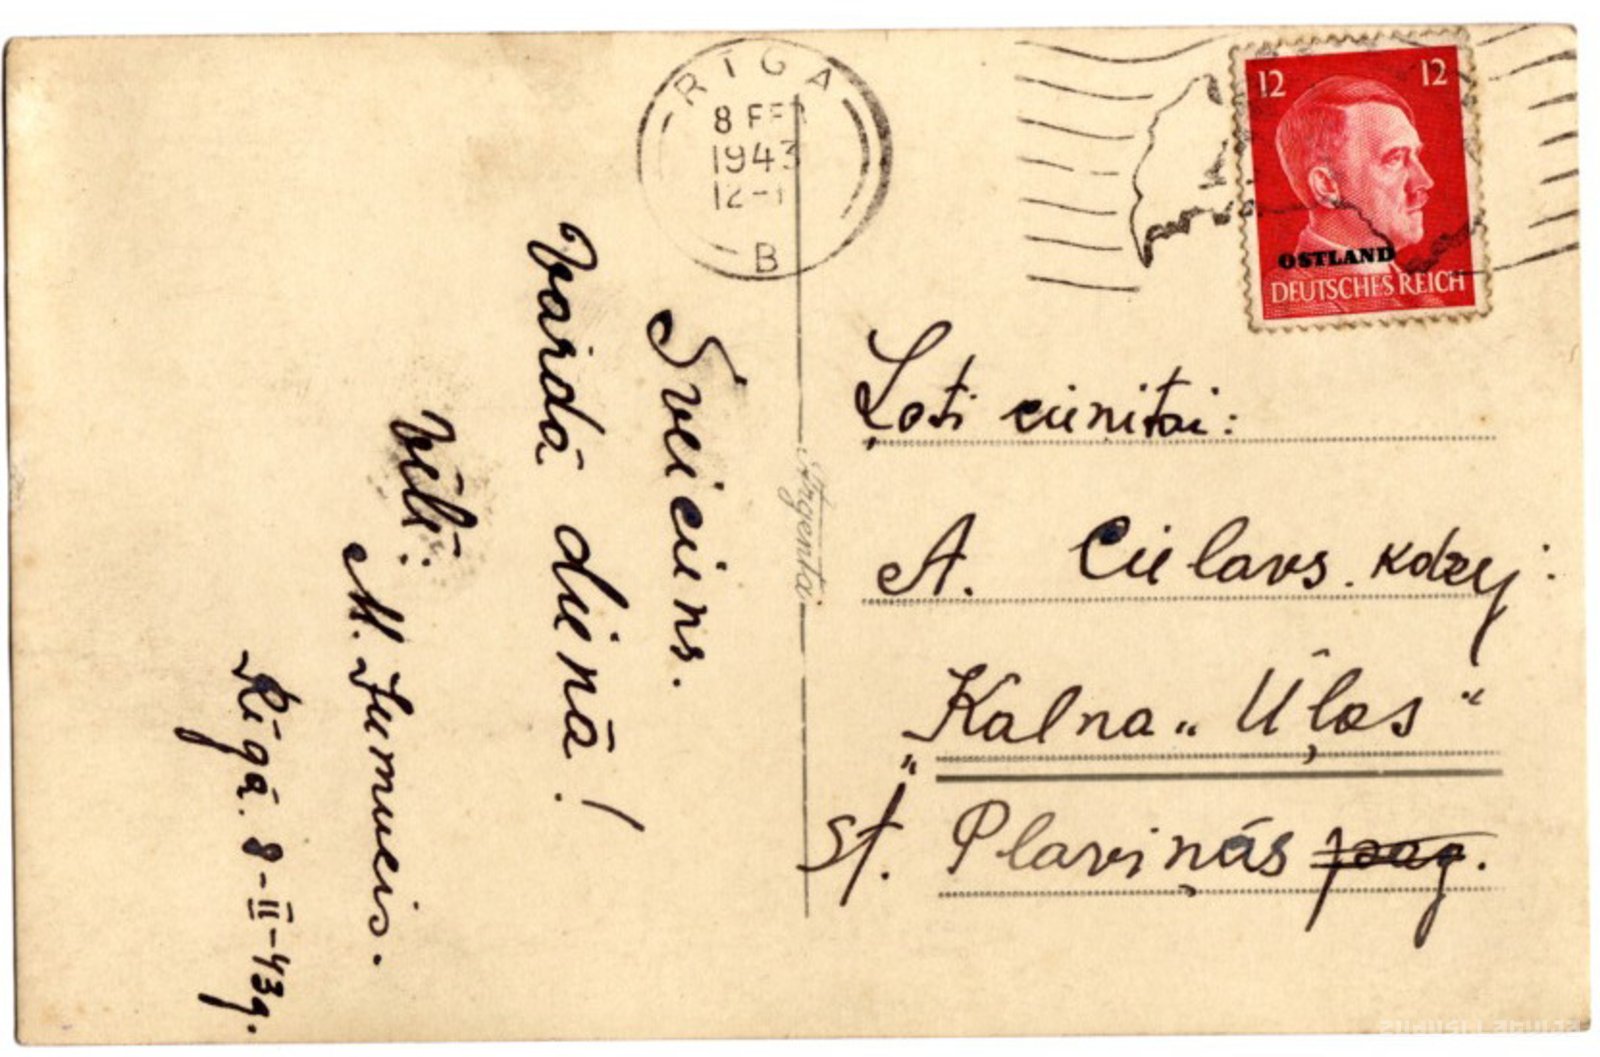 RIGA
8 FEB
1943
12-1
B
12 12
OSTLAND
DEUTSCHES REICH
Sveicins.
Vārdā dienā!
Vēlē:
Rīgā. 8-II-43g.
Argenta
Ļoti cieņitai:
A. Cielavs. kdzej:
"Kalna „Ūļas"
st. Plaviņās pag.